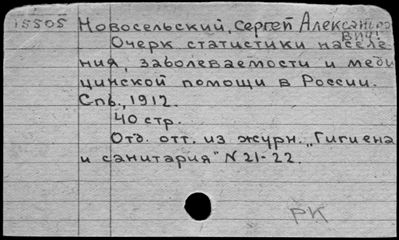 15505 Новосельский, Сергей Александро
вич!
Очерк статистики населе
ния, заболеваемости и меди
цинской помощи в России.
Спб., 1912.
40 стр.
Отд. отт. из журн. „Гигиена
и санитария" N 21-22.
РК